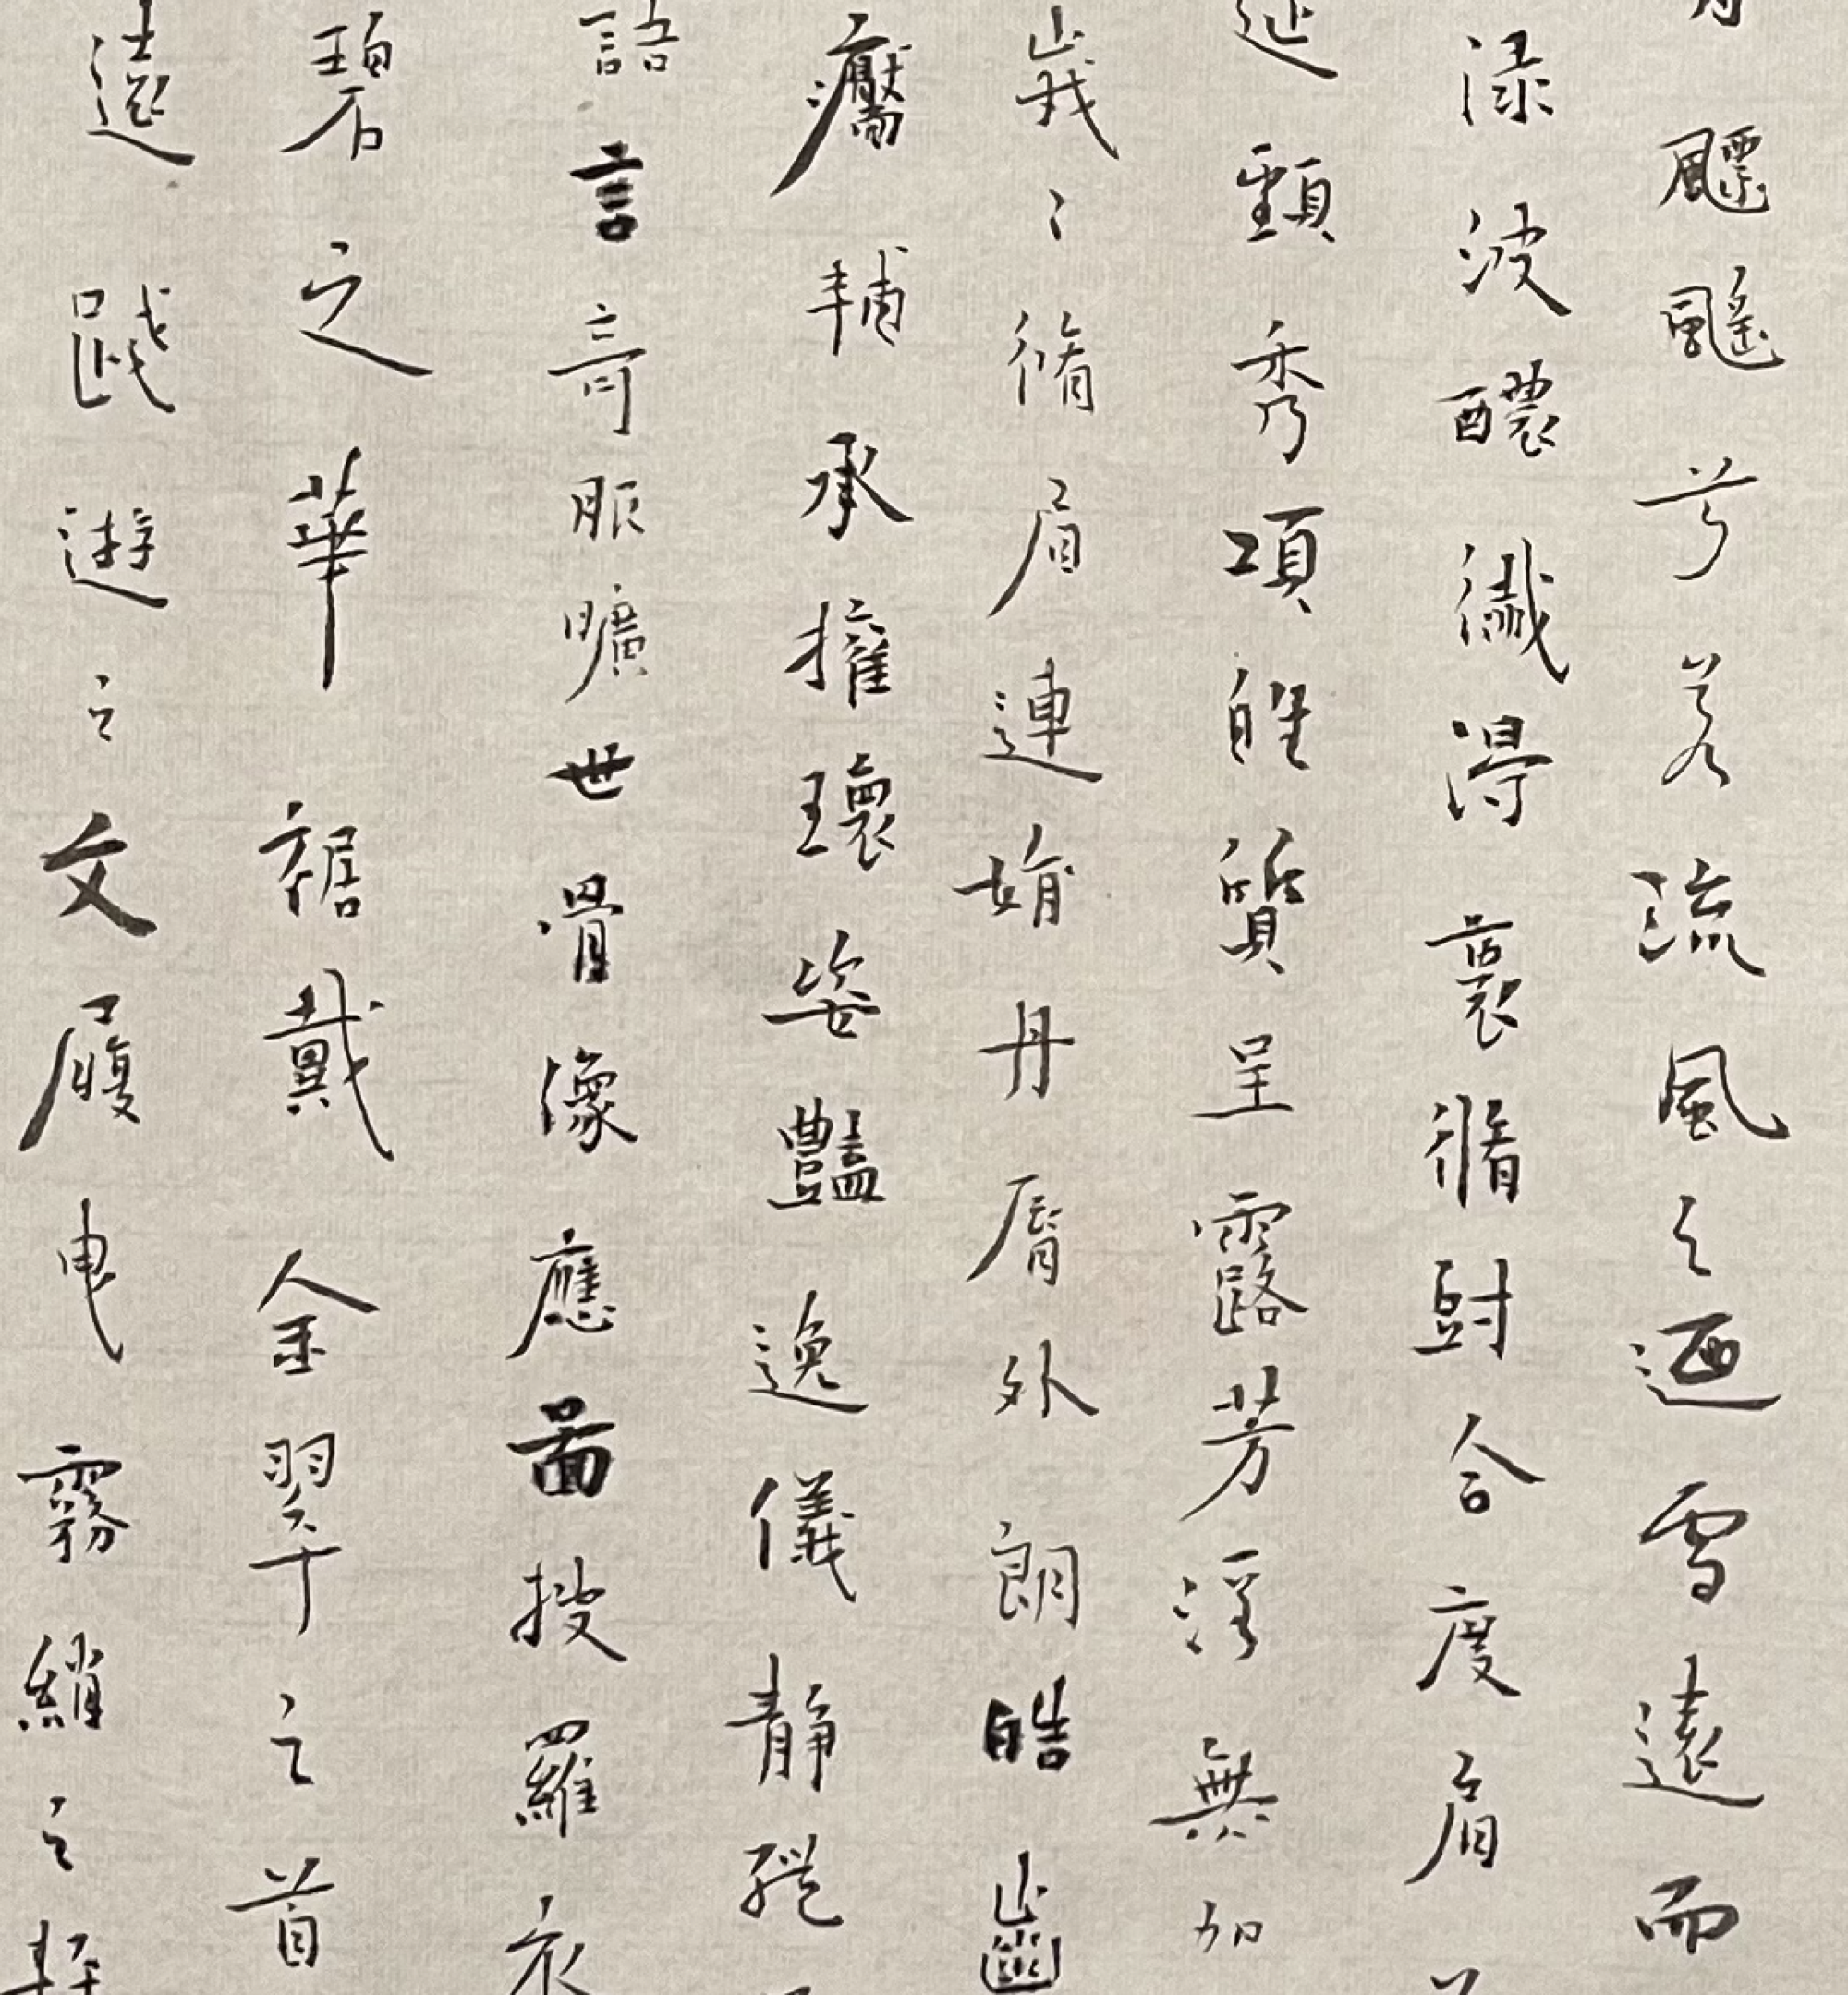 飃飖兮若流風之迴雪遠而
渌波醲纖得衷脩短合度肩
延頸秀項皓質呈露芳澤無加
峩〻脩眉連娟丹脣外朗皓齒
靨輔承權瓌姿豔逸儀靜體
語言奇服曠世骨像應圖披羅衣
碧之華裾戴金翠之首
遠踐遊之文履曳霧綃之輕